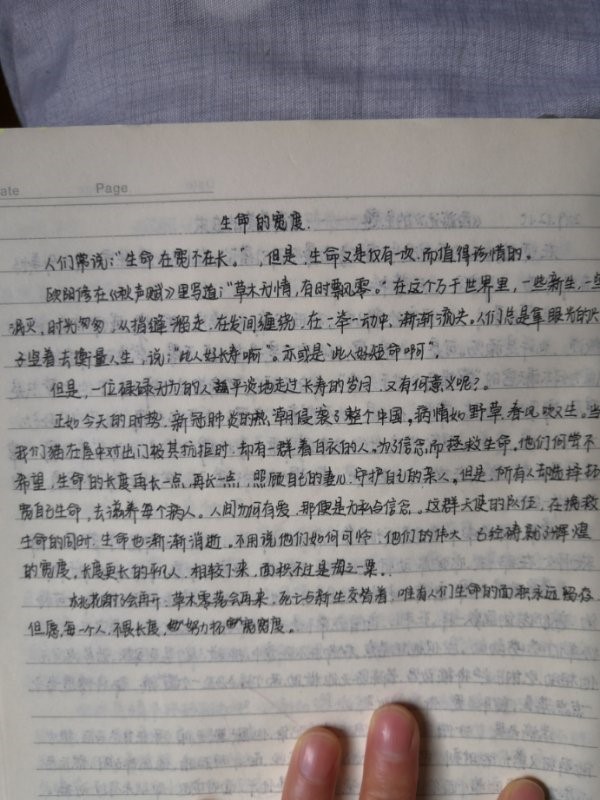 ate Page
生命的宽度.
人们常说："生命在宽不在长。"，但是，生命又是仅有一次，而值得珍惜的。
欧阳修在《秋声赋》里写道："草木无情，有时飘零。"在这个万千世界里，一些新生，一些
消灭，时光匆匆，从指缝溜走，在发间缠绕，在一举一动中，渐渐流失。人们总是拿眼光的尺
子坐着去衡量人生，说："此人好长寿啊"。亦或是"此人好短命啊"。
但是，一位碌碌无为的人平波地走过长寿的岁月，又有何意义呢？
正如今天的时势，新冠肺炎的热潮侵袭了整个中国，病情如野草，春风吹又生。当
我们猫在屋中对出门极其抗拒时，却有一群着白衣的人。为了信念而拯救生命。他们何尝不
希望，生命的长度再长一点，再长一点，照顾自己的妻儿，守护自己的家人。但是，所有人却选择拓
宽自己生命，去滋养每个病人。人间为何有爱，那便是为承占信念。这群天使的队伍，在挽救
生命的同时，生命也渐渐消逝。不用说他们如何可怜，他们的伟大，已经铸就了辉煌
的宽度，长度更长的平凡人，相较下来，面积不过是沧海一粟。
桃花谢了会再开，草木零落会再来，死亡与新生交替着，唯有人们生命的面积永远留存
但愿，每一个人，不畏长度，努力拓宽宽度。